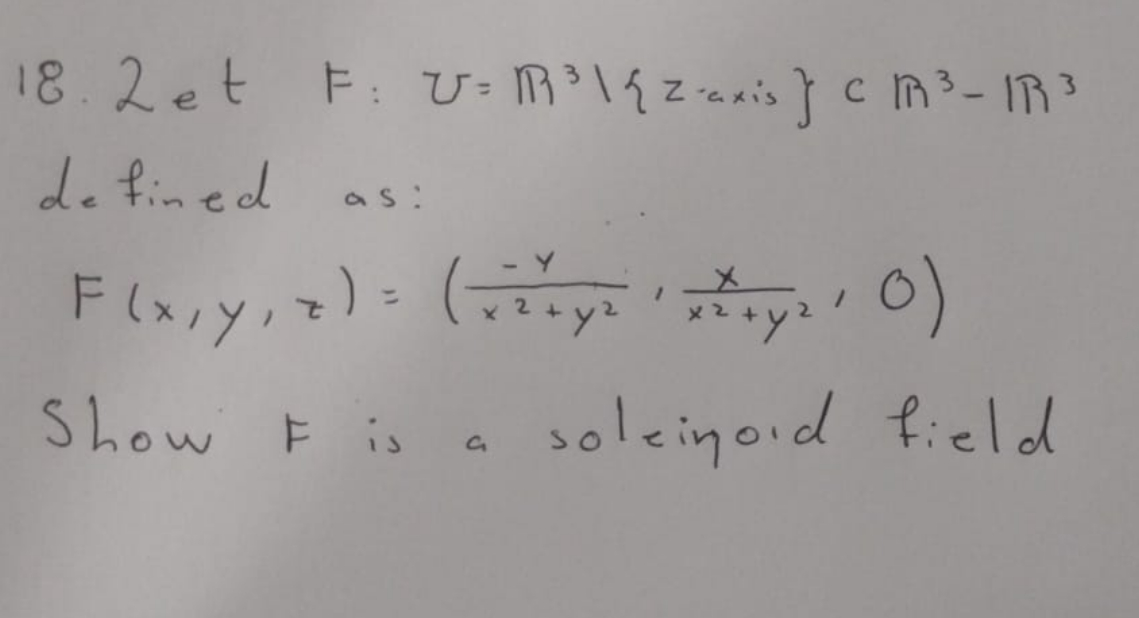 18. Let F: U = ℝ³ \ { z-axis } ⊂ ℝ³ - ℝ³
defined as:
F(x, y, z) = ( -y / x² + y² , x / x² + y² , 0 )
Show F is a soleinoid field